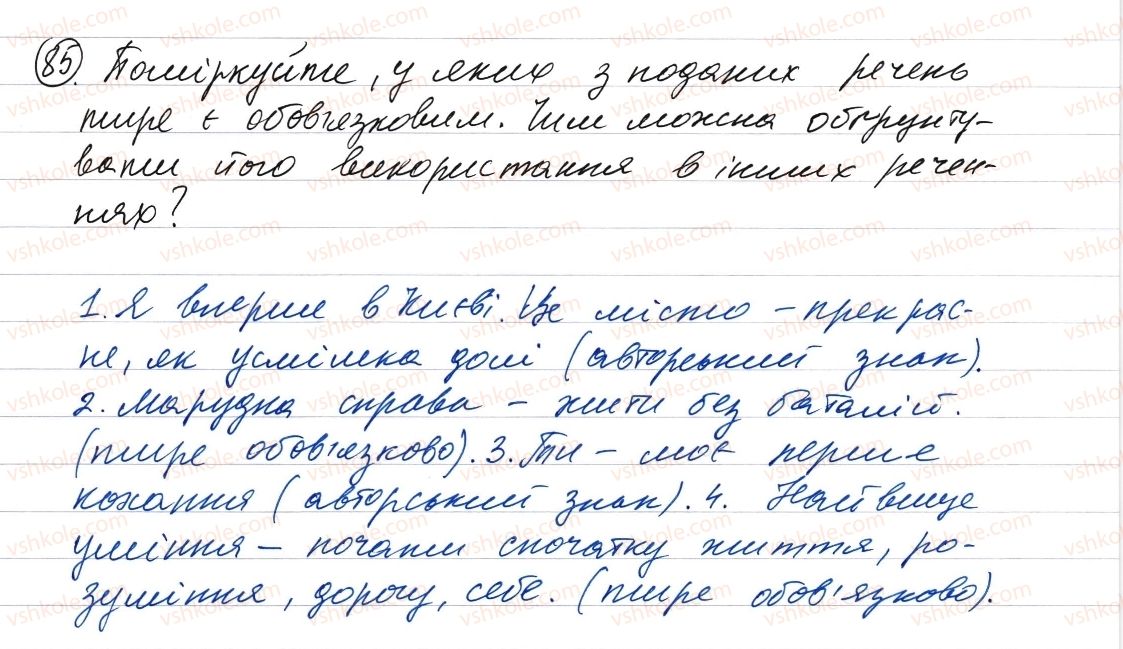 85. Поміркуйте, у яких з поданих речень
тире є обов'язковим. Чим можна обґрунту-
вати його використання в інших речен-
нях?
1. Я вперше в Києві. Це місто – прекрас-
не, як усмішка долі (авторський знак).
2. Марудна справа – жити без баталій.
(тире обов'язково). 3. Ти – моє перше
кохання (авторський знак). 4. Найвище
уміння – почати спочатку життя, ро-
зуміння, дорогу, себе. (тире обов'язково).